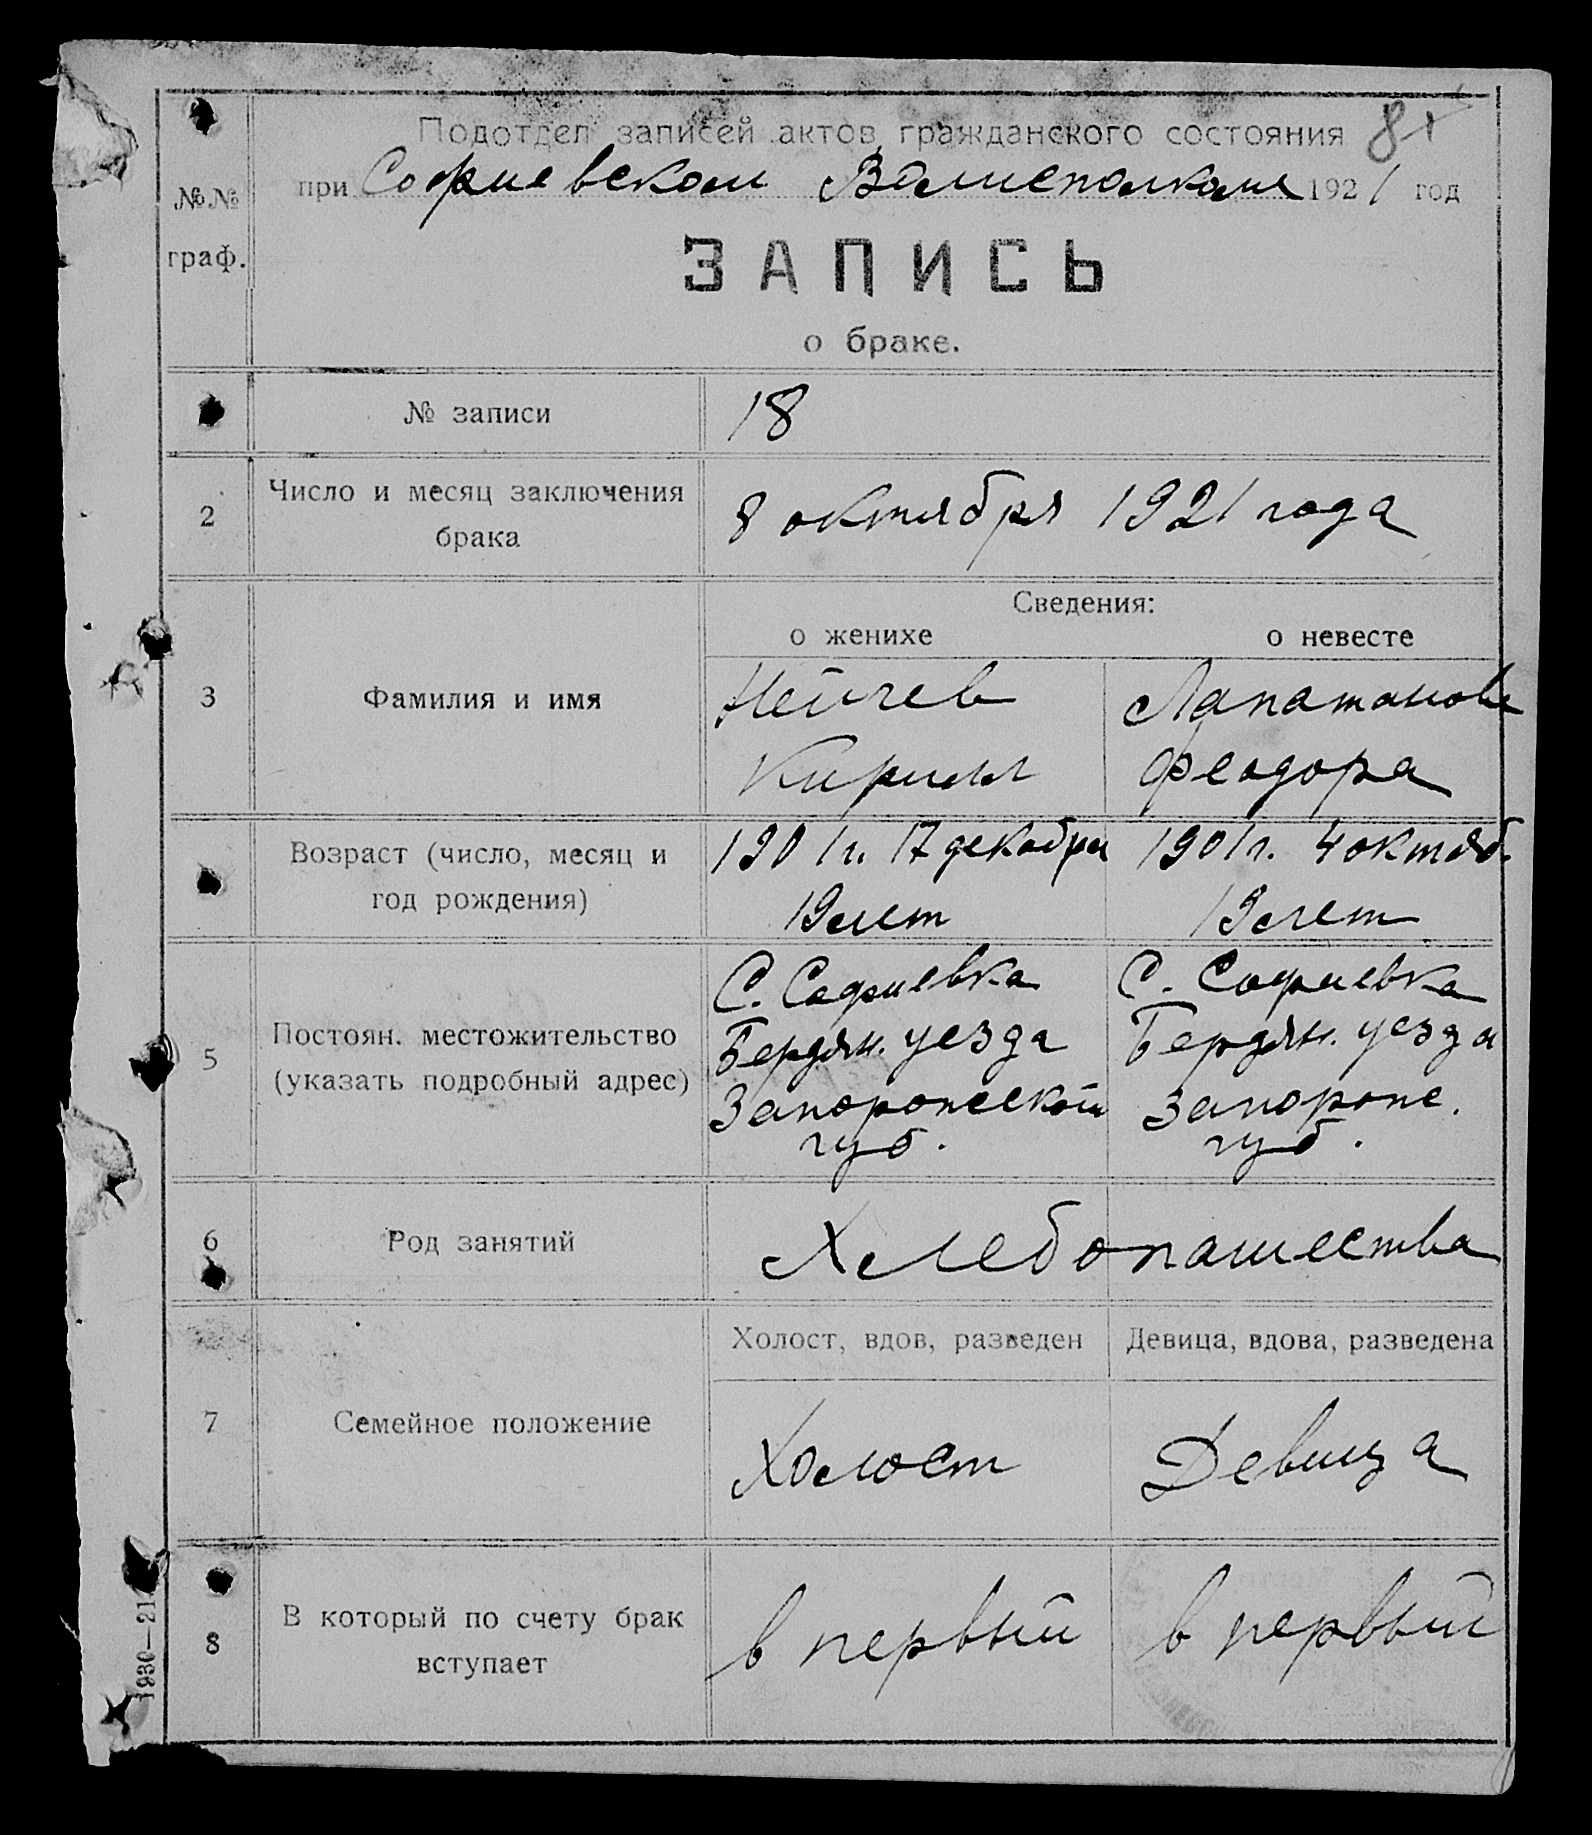 Подотдел записей актов гражданского состояния
при Софиевском Волисполкоме 1921 год
№№ граф.
ЗАПИСЬ
о браке.
№ записи
18
2
Число и месяц заключения
брака
8 октября 1921 года
Сведения:
о женихе
о невесте
3
Фамилия и имя
Нейчев
Кирилл
Лапатанова
Феодора
Возраст (число, месяц и
год рождения)
1901 г. 17 декабря
19 лет
1901 г. 4 октяб.
19 лет
5
Постоян. местожительство
(указать подробный адрес)
С. Софиевка
Бердян. уезда
Запорожской
губ.
С. Софиевка
Бердян. уезда
Запорож.
губ.
6
Род занятий
Хлебопашества
7
Семейное положение
Холост, вдов, разведен
Девица, вдова, разведена
Холост
Девица
8
В который по счету брак
вступает
в первый
в первый